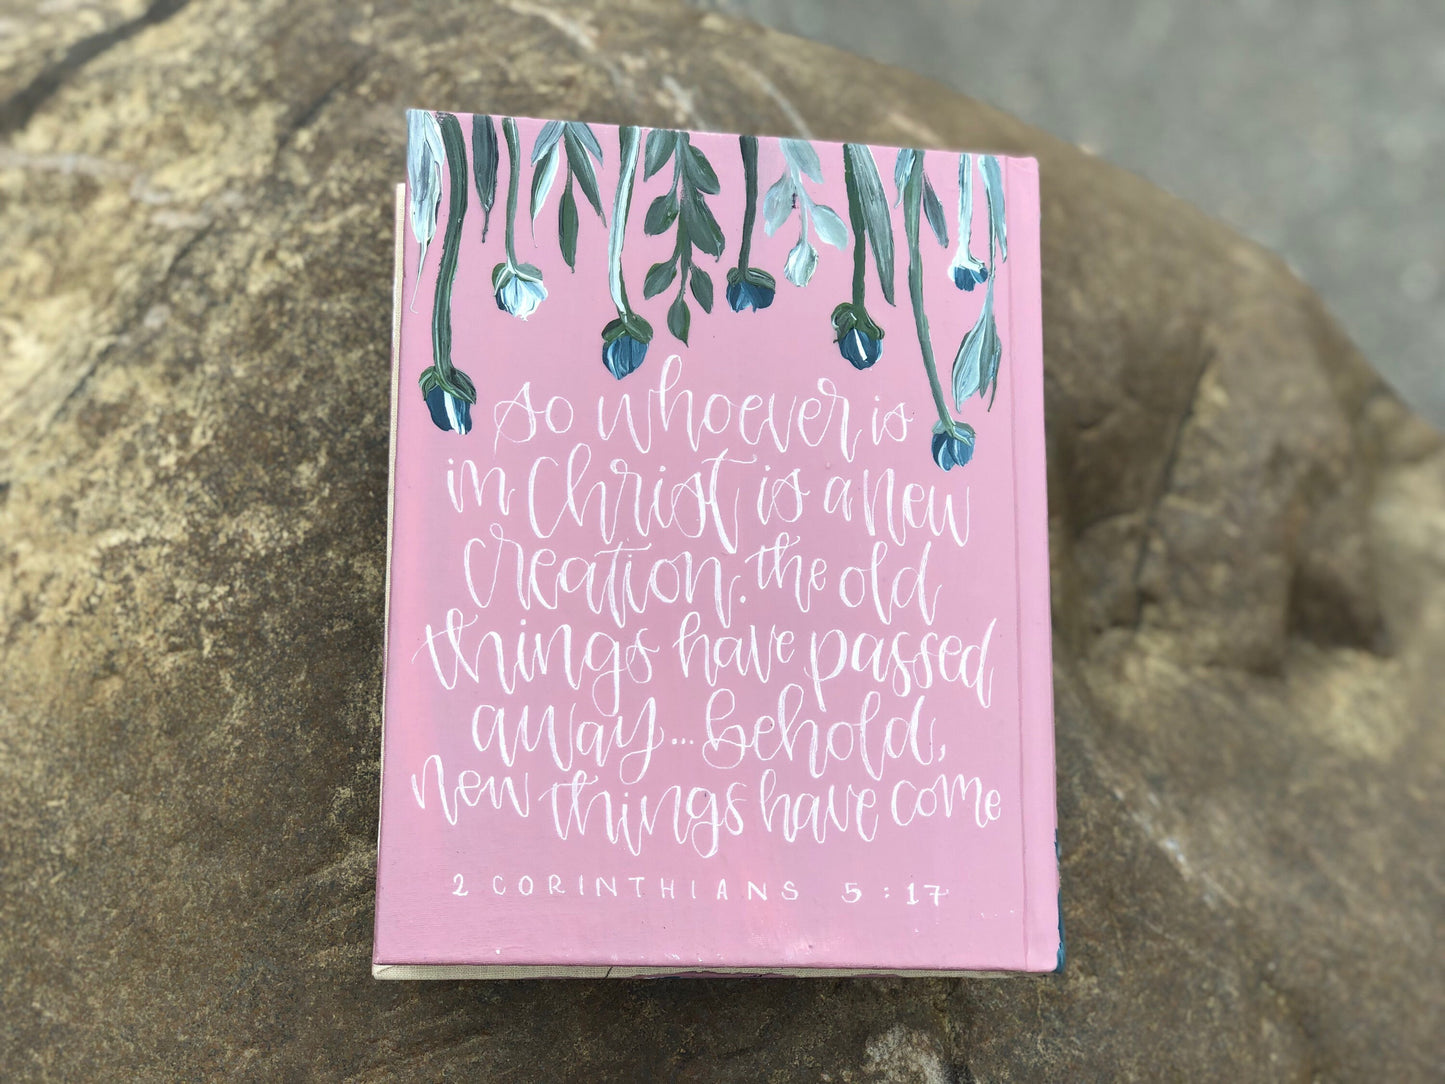 so whoever is
in Christ is a new
creation. the old
things have passed
away... behold,
new things have come
2 CORINTHIANS 5:17